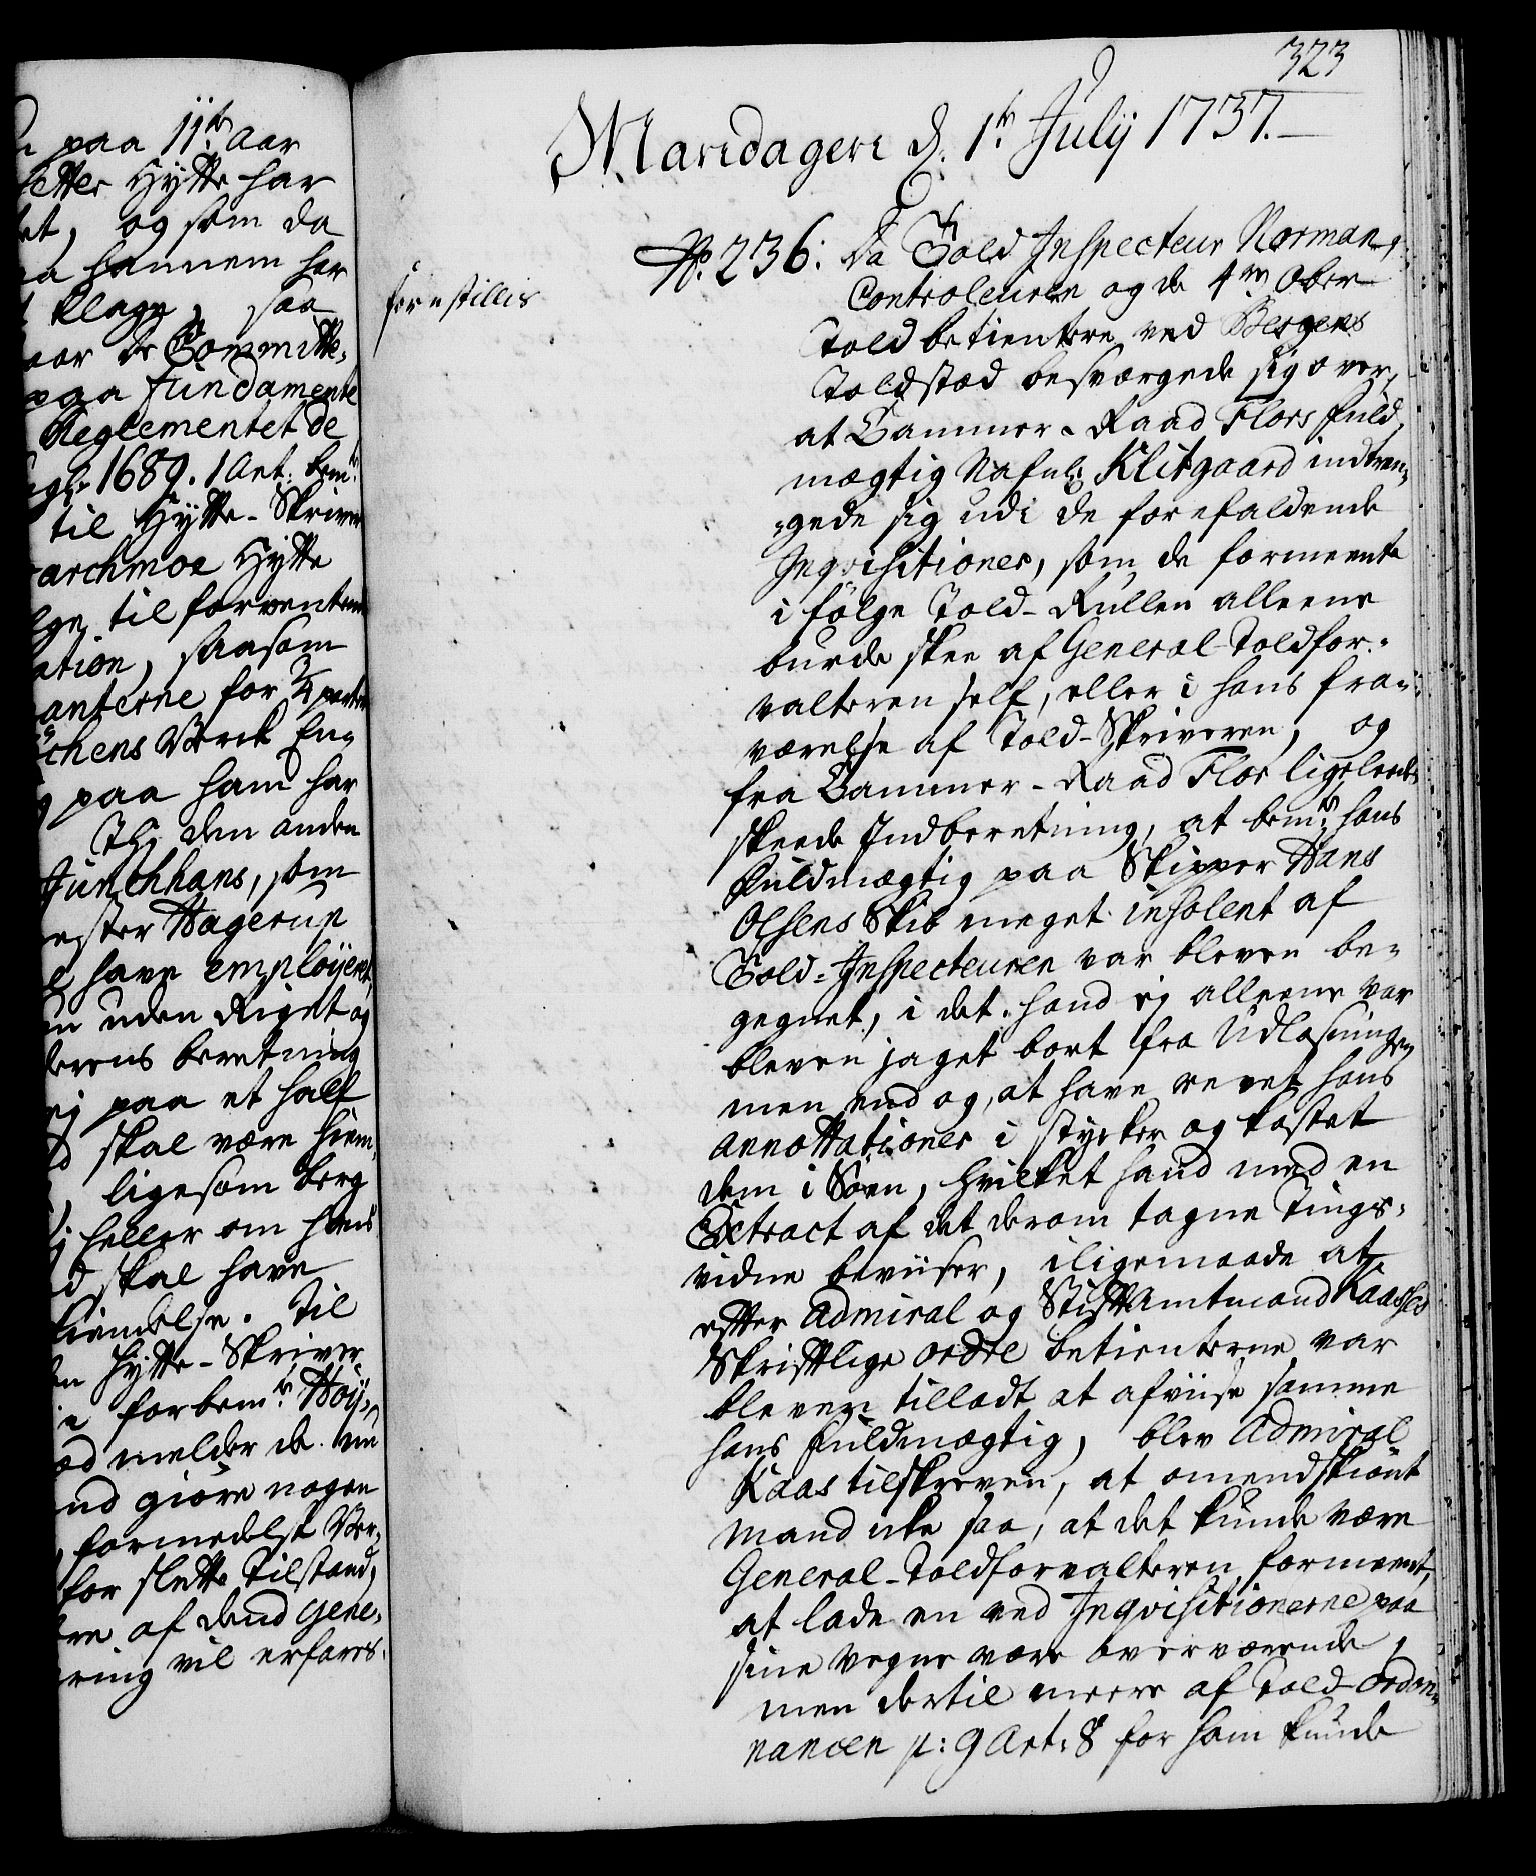 paa 11te Aar
Hytte har
et, og som da
hannem har
klage, saa
aar de Committe-
paa fundamente
Reglementet de
1689. 1 Art: bemte
til Hytte-Skriver
archmoe Hytte
til forventende
ation, saasom
anterne for 3/4 parten
chens Verck En-
paa ham har
Th: den anden
Junchhans, som
ester Hagerup
have employeret
uden Riget og
derens beretning
ej paa et half
skal være hiem-
ligesom berg
heller om hans
skal have
kiendelse. Til
Hytte-Skriver
forbemte Höy-
melder de nu
nd giöre nogen
formedelst Ver-
for slette Tilstand,
af dend Gene-
ring vil erfares.
323
Mandagen d. 1te Julij 1737.
No. 236: Da Told Inspecteur Norman,
forestillis
Controleuren og de 4re Ober
Told betientere ved Bergens
Toldsted besværgede sig over,
at Cammer-Raad Flors fuld-
mægtig Nafnl: Klitgaard indtræn-
gede sig udi de forefaldende
Inqvisitioner, som de formeente
i fölge Told-Rullen alleene
burde skee af General-Toldfor-
valteren self, eller i hans fra-
værelse af Told-Skriveren, og
fra Cammer-Raad Flor ligeleedes
skeede Indberetning, at bemte hans
fuldmægtig paa Skipper Hans
Olsens Skib meget insolent af
Told-Inspecteuren var bleven be-
gegnet, i det hand ej alleene var
bleven jaget bort fra Udlosningen
men end og, at have revet hans
annottationer i stycker og kastet
dem i Söen, hvilket hand med en
Extract af det derom tagne Tings-
vidne beviiser, iligemaade at
efter Admiral og Stiftamtmand Kaasses
Skriftlige ordre betienterne var
bleven tilladt at afviise samme
hans fuldmægtig, blev Admiral
Kaas tilskreven, at omendskiönt
mand icke saa, at det kunde være
General-Toldforvalteren formeent,
at lade en ved Inqvisitionerne paa
sine vegne være overværende,
men dertil meere af Told-Ordon-
nancen p: 9 Art: 8 for ham kunde